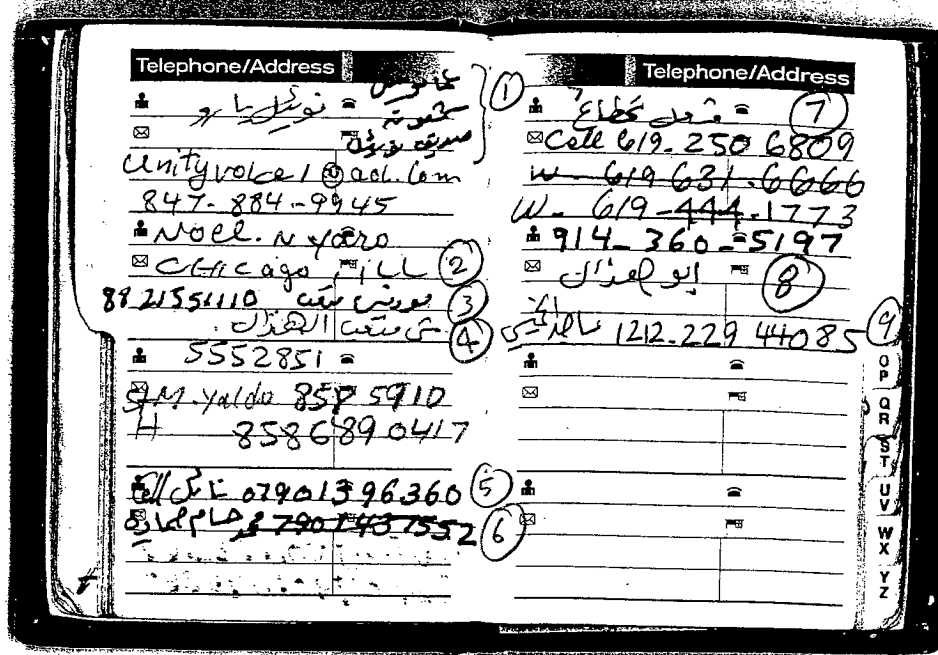 Telephone/Address
①
نوئيل يارو
unityvoice1@aol.com
847-884-9945
Noel. N yaro
CHicago ILL ②
8821551110 ③
متعب الهذال ④
5552851
M. yaldo 858 5910
H 8586890417
Cell 07901396360 ⑤
حسام عمارة 7901437552 ⑥
Telephone/Address
⑦
Cell 619-250 6809
W- 619-631-6666
W- 619-444-1773
914-360-5197
ابو هذال ⑧
1212-229 44085 ⑨
OP
QR
ST
UV
WX
YZ